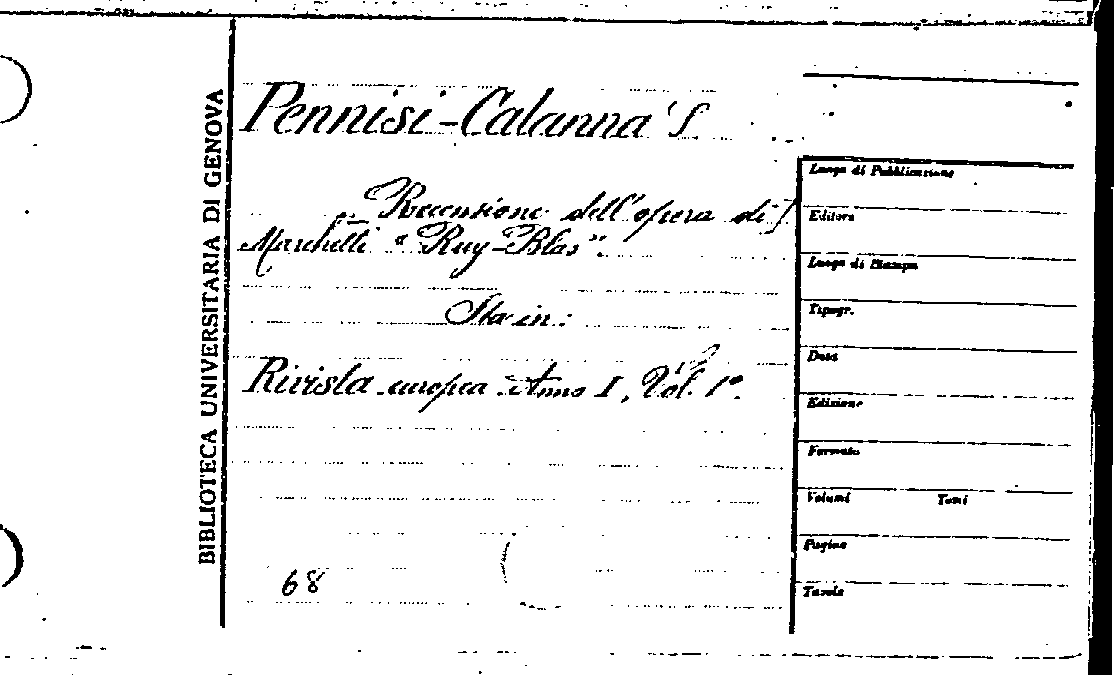 BIBLIOTECA UNIVERSITARIA DI GENOVA
Pennisi-Calanna S
Recensione dell'opera di
Marchetti "Ruy-Blas".
Sta in:
Rivista europea Anno I, Vol. 1°.
68
Luogo di Pubblicazione
Editore
Luogo di Stampa
Tipogr.
Data
Edizione
Formato
Volumi Tomi
Pagine
Tavole